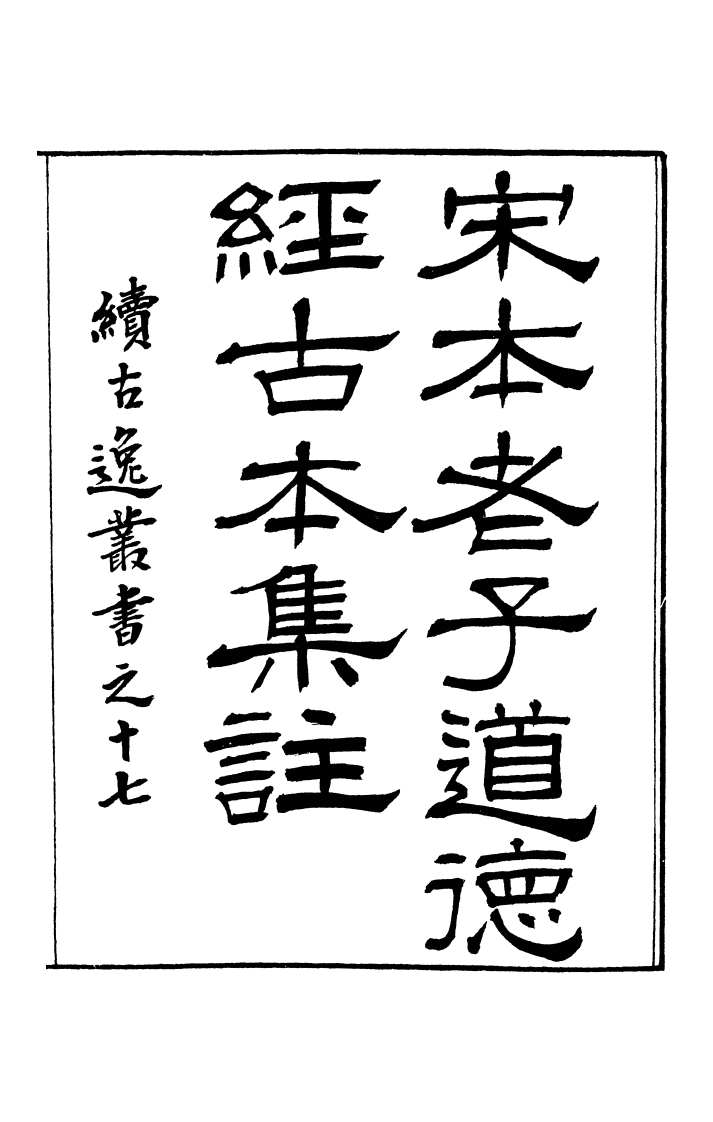 宋本老子道德
經古本集註
續古逸叢書之十七